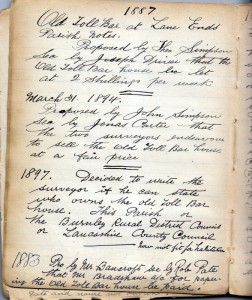 1887
Old Toll Bar at Lane Ends
Parish Notes.
Proposed by Wm Simpson
Sec by Joseph Driver that the
Old Toll Bar house be let
at 2 Shillings per week
March 31. 1894.
Proposed by John Simpson
Sec by Jonas Carter that
the two surveyors endeavour
to sell the Old Toll Bar House
at a fair price
1897. Decided to write the
surveyor if he can state
who owns the old Toll Bar
house. This Parish or
the Burnley Rural District Council
or Lancashire County Council
house not fit for habitation
1883 Pro by Mr Bancroft sec by Rob Pate
that Mr Bradshaw for paper
ing the Old Toll Bar house be paid.